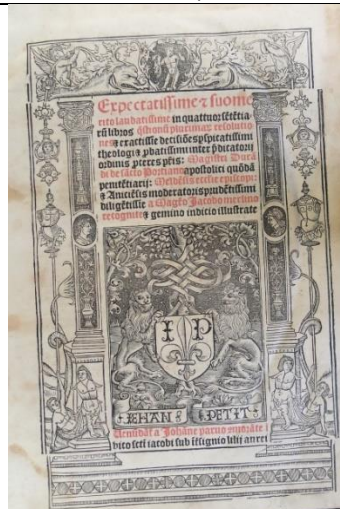 Expectatissime ⁊ suome
rito laudatissime in quattuor sētētia
rū libros q̄stionū plurimaꝝ resolutio
nes ⁊ exactisse decisiōes
theologi ⁊ inter p̄dicatorū
ordinis p̄teres ptis: Magistri Durā
di de sācto Portiano apostolici quōdā
penitētiarij: Meldēsis ecclie episcopi:
⁊ Aniciēsis moderatoris prudētissimi
diligētisse a Magr̄o Jacobo merlino
recognite ⁊ gemino indicio illustrate
I P
IEHAN PETIT
Uenūdāt a Johāne paruo
vico scti iacobi sub isignio lilij aurei